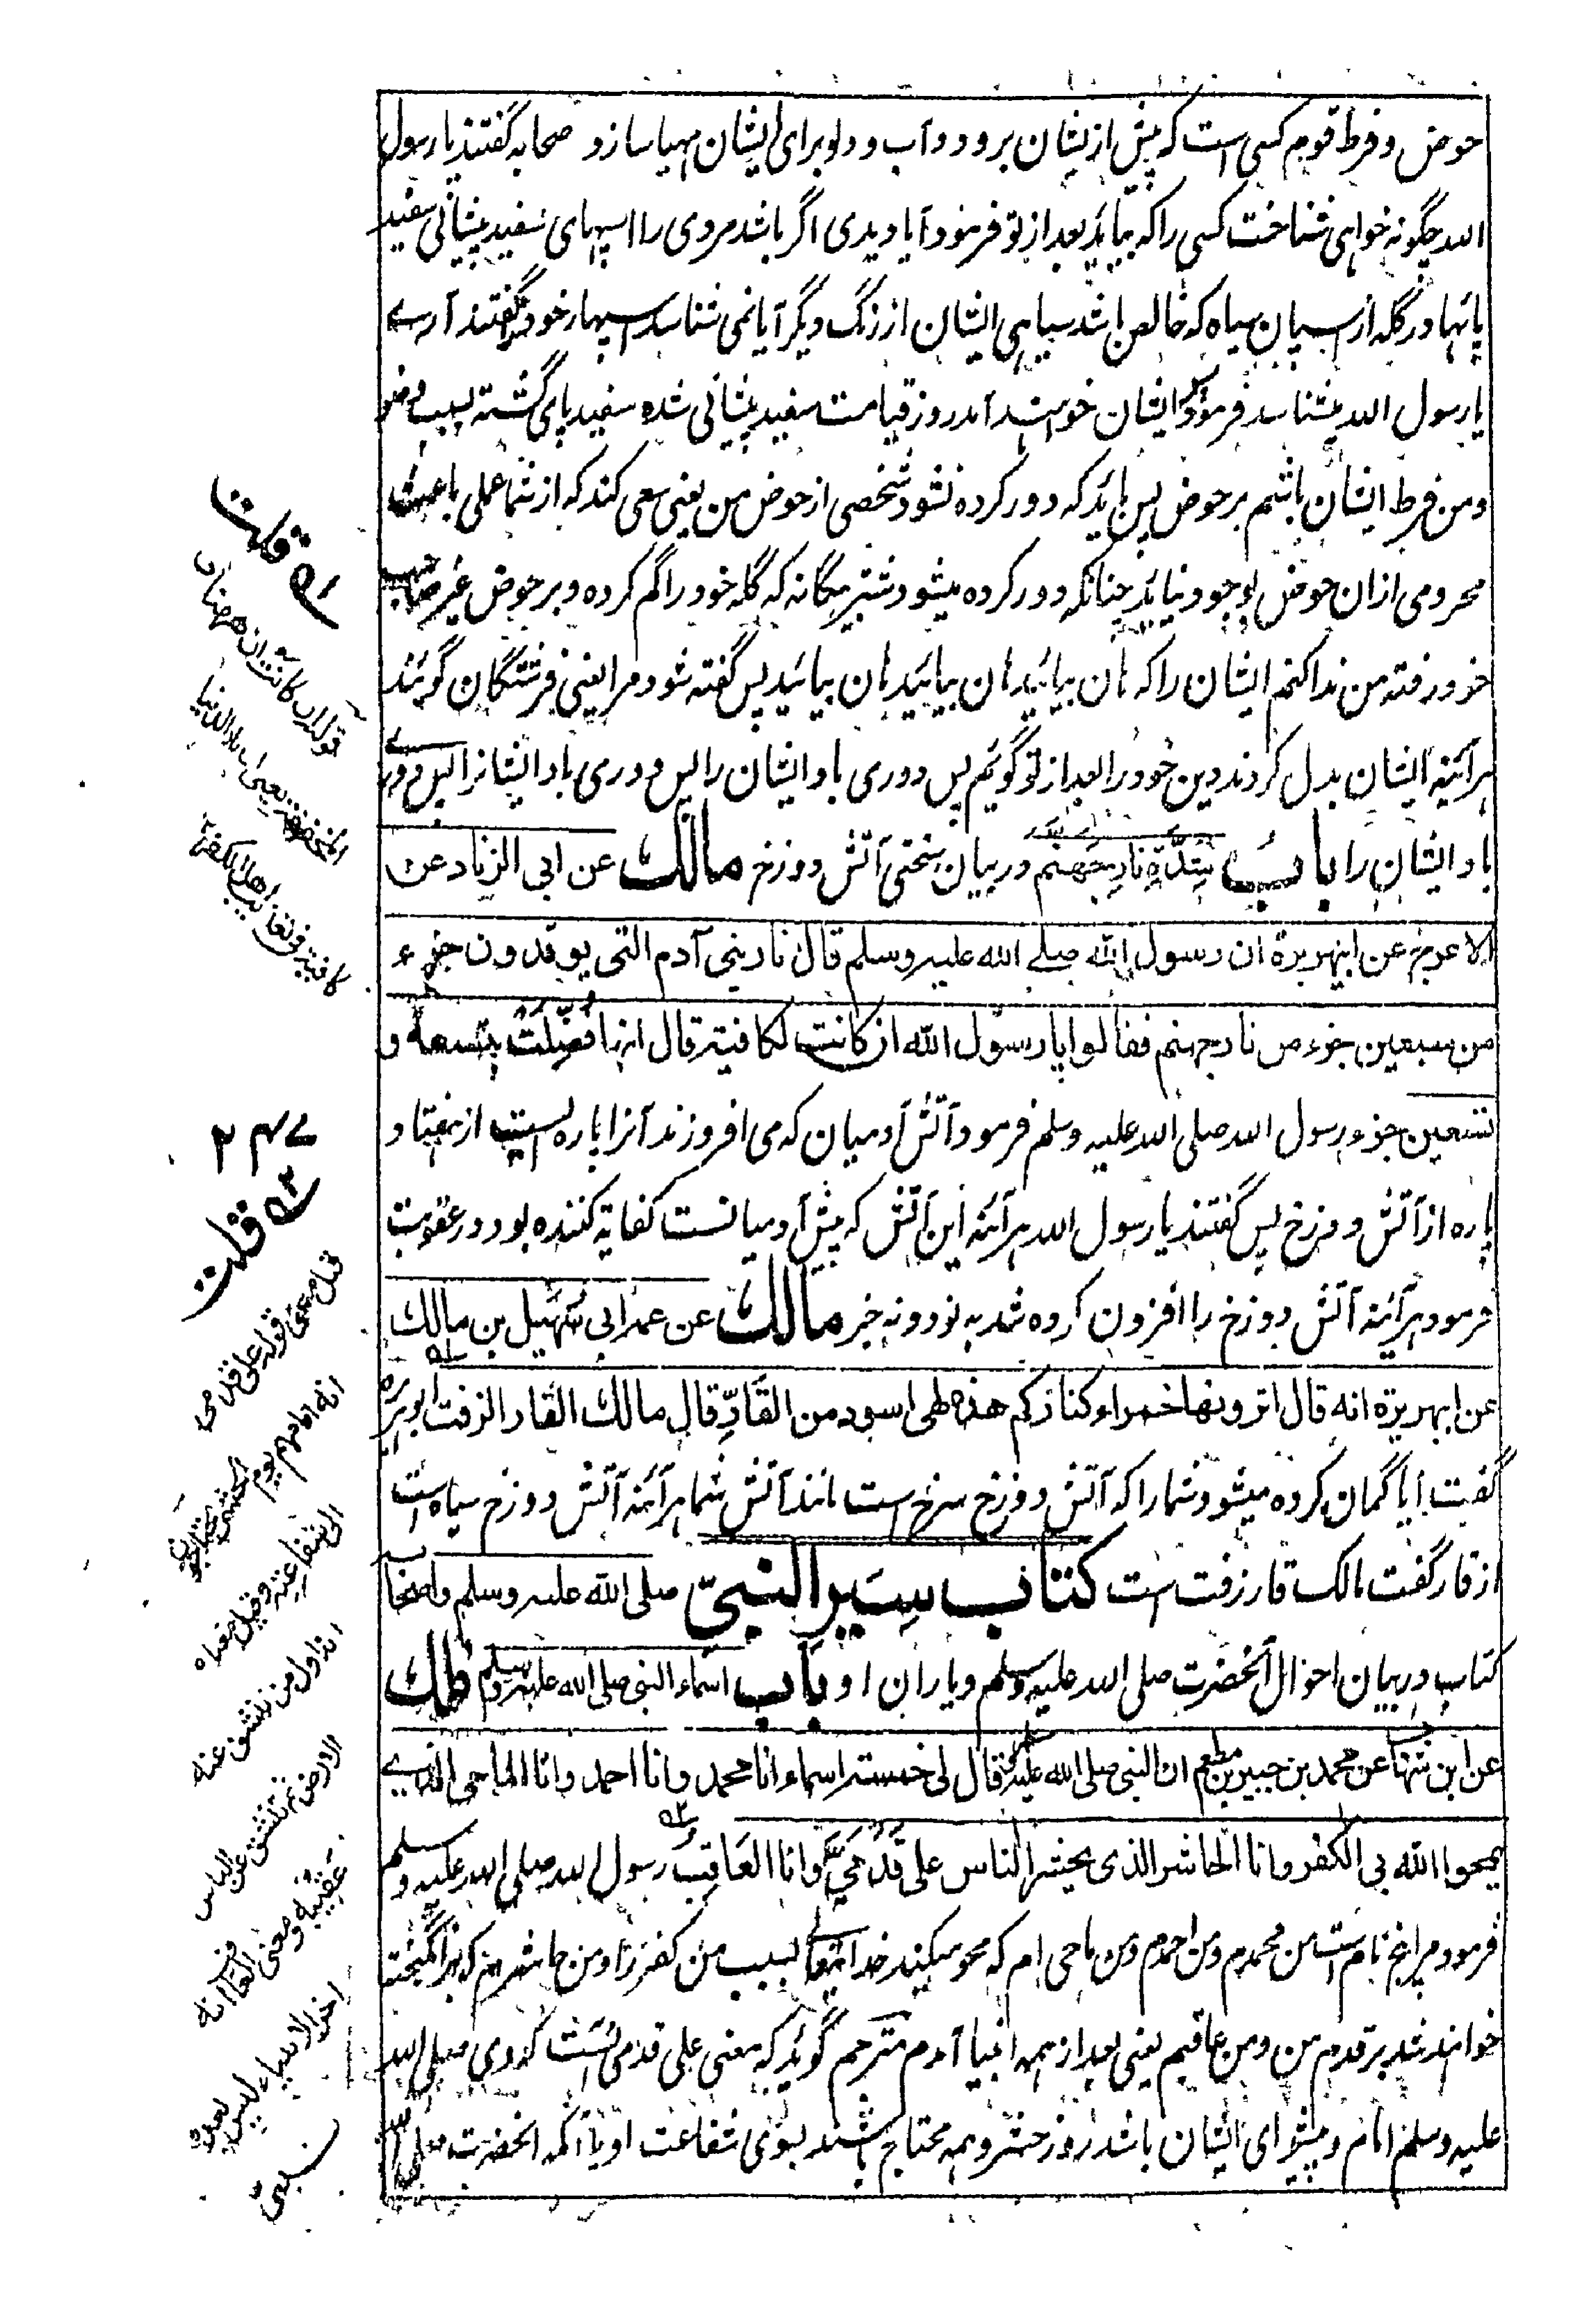 حوض و فرط قوم کسی است که پیش ازیشان برود و آب و دلو برای ایشان مهیا سازد صحابه گفتند یا رسول
الله چگونه خواهی شناخت کسی را که بیاید بعد از تو فرمود آیا دیدی اگر باشد مردی را اسپهای سفید پیشانی سفید
پایها در گله از اسپان سیاه که خالص باشد سیاهی ایشان از رنگ دیگر آیا نمی شناسد اسپهار خود گفتند آرے
یا رسول الله میشناسد فرمود ایشان خواهند آمد روز قیامت سفید پیشانی شده سفید پای گشته بسبب وضو
و من فرط ایشان باشم بر حوض پس باید که دور کرده نشود شخصی از حوض من یعنی سعی کند که از شما عملی باعث
محرومی ازان حوض بوجود نیاید چنانکه دور کرده میشود شتر بیگانه که گله خود را گم کرده و بر حوض غیر صاحب
خود رفته من ندا کنم ایشان را که هان بیائید هان بیائید هان بیائید پس گفته شود مرا یعنی فرشتگان گویند
هرآئینه ایشان بدل کردند دین خود را بعد از تو گویم پس دوری باد ایشان را پس دوری باد ایشانرا پس دورے
باد ایشان را باب شدة نار جهنم در بیان سختی آتش دوزخ مالك عن ابی الزناد عن
الاعرج عن ابیهریرة ان رسول الله صلے الله علیه وسلم قال نار بنی آدم التی یوقدون جزء
من سبعین جزء من نار جهنم فقالوا یا رسول الله ان كانت لكافية قال انها فضلت بتسعة و
تسعین جزء رسول الله صلی الله علیه وسلم فرمود آتش آدمیان که می افروزند آنرا پاره ایست از هفتاد
پاره از آتش دوزخ پس گفتند یا رسول الله هرآئنه این آتش که پیش آدمیانست کفایة کننده بود در عقوبت
فرمود هرآئینه آتش دوزخ را افزون کرده شد به نود و نه جزء مالك عن عمه ابی سهیل بن مالك
عن ابیهریرة انه قال اترونها حمراء كناركم هذه لهی اسود من القار قال مالك القار الزفت ابوهریره
گفت آیا گمان کرده میشود شما را که آتش دوزخ سرخ است مانند آتش شما هرآئنه آتش دوزخ سیاه است
از قار گفت مالک قار زفت است كتاب سير النبي صلى الله عليه وسلم واصحابه
کتاب در بیان احوال آنحضرت صلی الله علیه وسلم و یاران او باب اسماء النبی صلی الله علیه وسلم مالك
عن ابن شهاب عن محمد بن جبیر بن مطعم ان النبی صلی الله علیه وسلم قال لی خمسة اسماء انا محمد وانا احمد وانا الماحی الذے
یمحوا الله بی الکفر وانا الحاشر الذی یحشر الناس علی قدمی وانا العاقب رسول الله صلی الله علیه وسلم
فرمود مرا پنج نام است من محمدم و من احمدم و من ماحی ام که محو میکند خدا تعالے بسبب من کفر را و من حاشرم که برانگیخته
خواهند شد بر قدم من و من عاقبم یعنی بعد از همه انبیا آمدم مترجم گوید که معنی علی قدمی آنست که وی صلی الله
علیه وسلم امام و پیشوای ایشان باشد روز حشر و همه محتاج باشند بسوی شفاعت او یا آنکه آنحضرت صلی الله
قلت
قوله ان كانت ان هی
المخففة یعنی نار الدنیا
كافیة فی تعذیب
قلت
قیل معنی قوله علی قدمی
انه امامهم یوم
الی شفاعته وقیل معناه
انه اول من تنشق عنه
الارض ثم تنشق عن الناس
عقیبه ومعنی العاقب انه
اخر الانبیاء لیس بعده
نبی